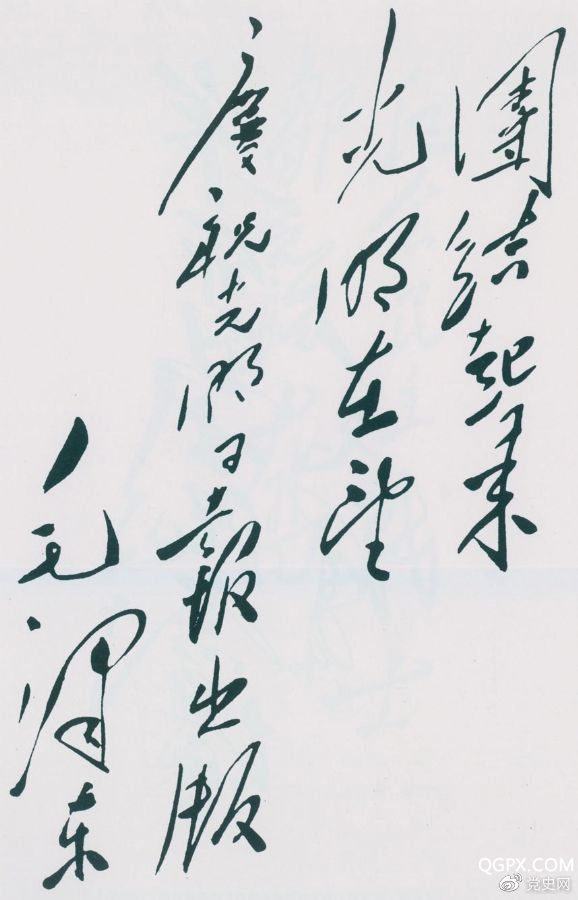 團结起来
光明在望
慶祝光明日報出版
毛泽东
QGPX.COM
党史网